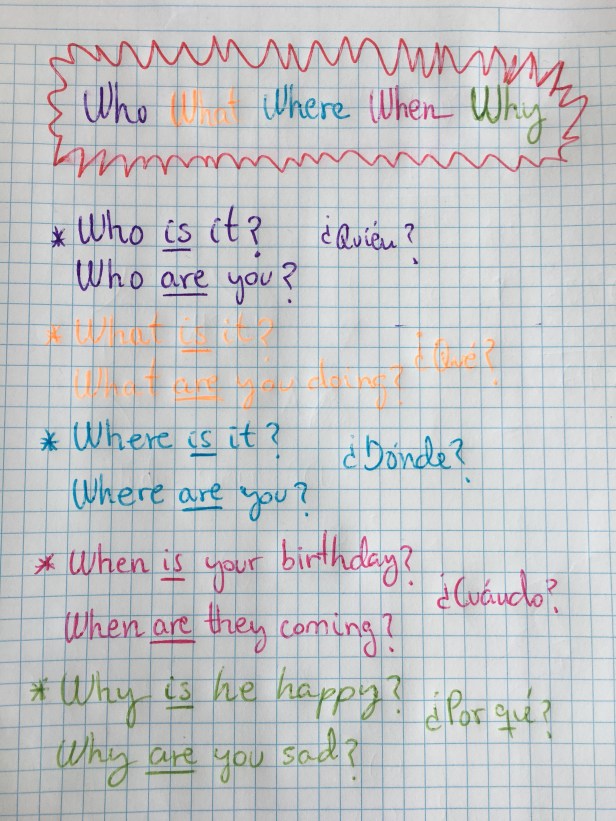 Who What Where When Why
* Who is it? ¿Quién?
Who are you?
* What is it?
What are you doing? ¿Qué?
* Where is it? ¿Dónde?
Where are you?
* When is your birthday?
When are they coming? ¿Cuándo?
* Why is he happy? ¿Por qué?
Why are you sad?